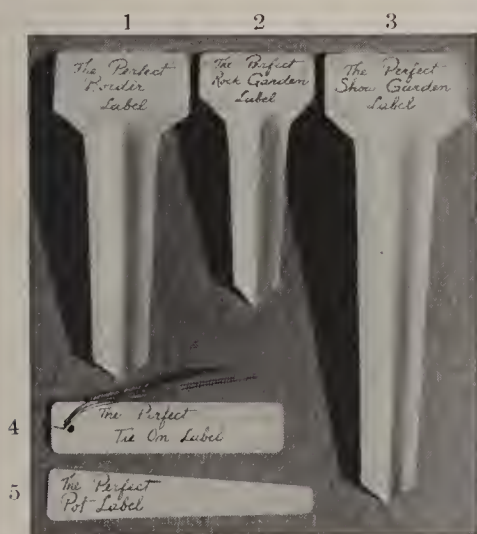 1 2 3
The Perfect
Border
Label
The Perfect
Rock Garden
Label
The Perfect
Show Garden
Label
4
The Perfect
Tie On Label
5
The Perfect
Pot Label